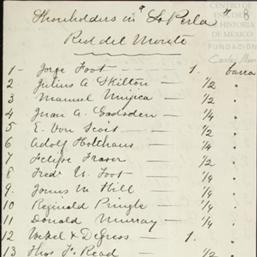 Shareholders in "La Perla" # 8
Real del Monte
1 - Jorge Foot — 1. barra
2 Julius A Skilton — 1/2 "
3 Manuel Mujica — 1/2 "
4 Juan A. Gadsden — 1/4 "
5 E. Von 1/2 "
6 Adolf Hotchaus — 1/4 "
7 Felipe Fraser — 1/2 "
8 Fredk N. Foot — 1/4 "
9 James W Hill — 1/4 "
10 Reginald Pringle — 1/4 "
11 Donald Murray — 1/4 "
12 & Degress — 1. "
13 Thos F. Read — 1/2 "
HISTORIA
DE MEXICO
FUNDACIÓN